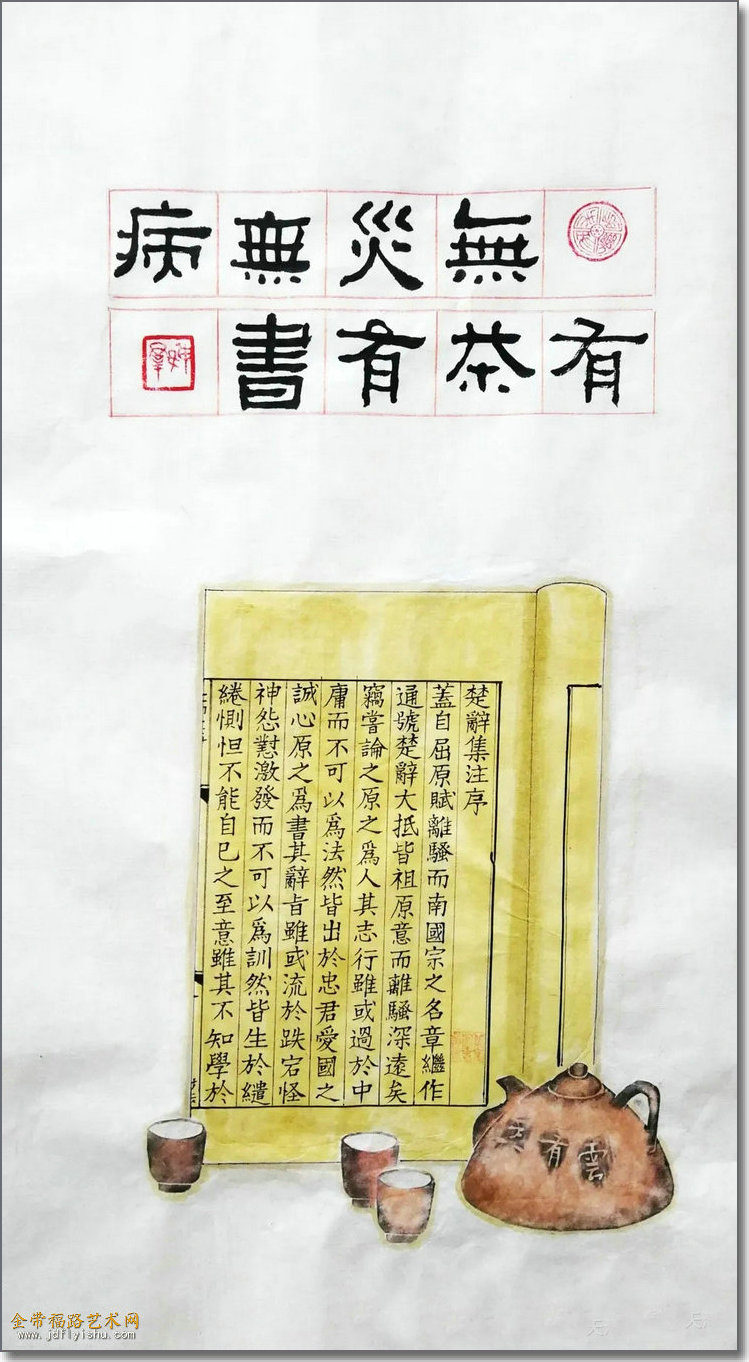 無災無病
有茶有書
楚辭集注序
蓋自屈原賦離騷而南國宗之名章繼作
通號楚辭大抵皆祖原意而離騷深遠矣
竊嘗論之原之爲人其志行雖或過於中
庸而不可以爲法然皆出於忠君愛國之
誠心原之爲書其辭旨雖或流於跌宕怪
神怨懟激發而不可以爲訓然皆生於繾
綣惻怛不能自已之至意雖其不知學於
雲有
金带福路艺术网
www.jdflyishu.com